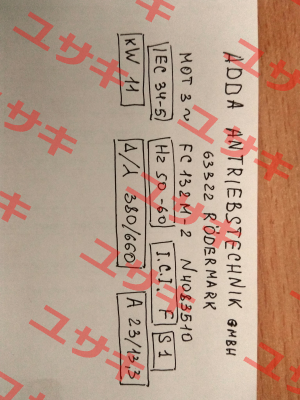 ADDA ANTRIEBSTECHNIK GMBH
63322 RÖDERMARK
MOT 3~ FC 132M-2 N4083510
IEC 34-5 Hz 50-60 I.C.I. F S1
kW 11 Δ/λ 380/660 A 23/13,3
ユサキ
ユサキ
ユサキ
ユサキ
ユサキ
ユサキ
ユサキ